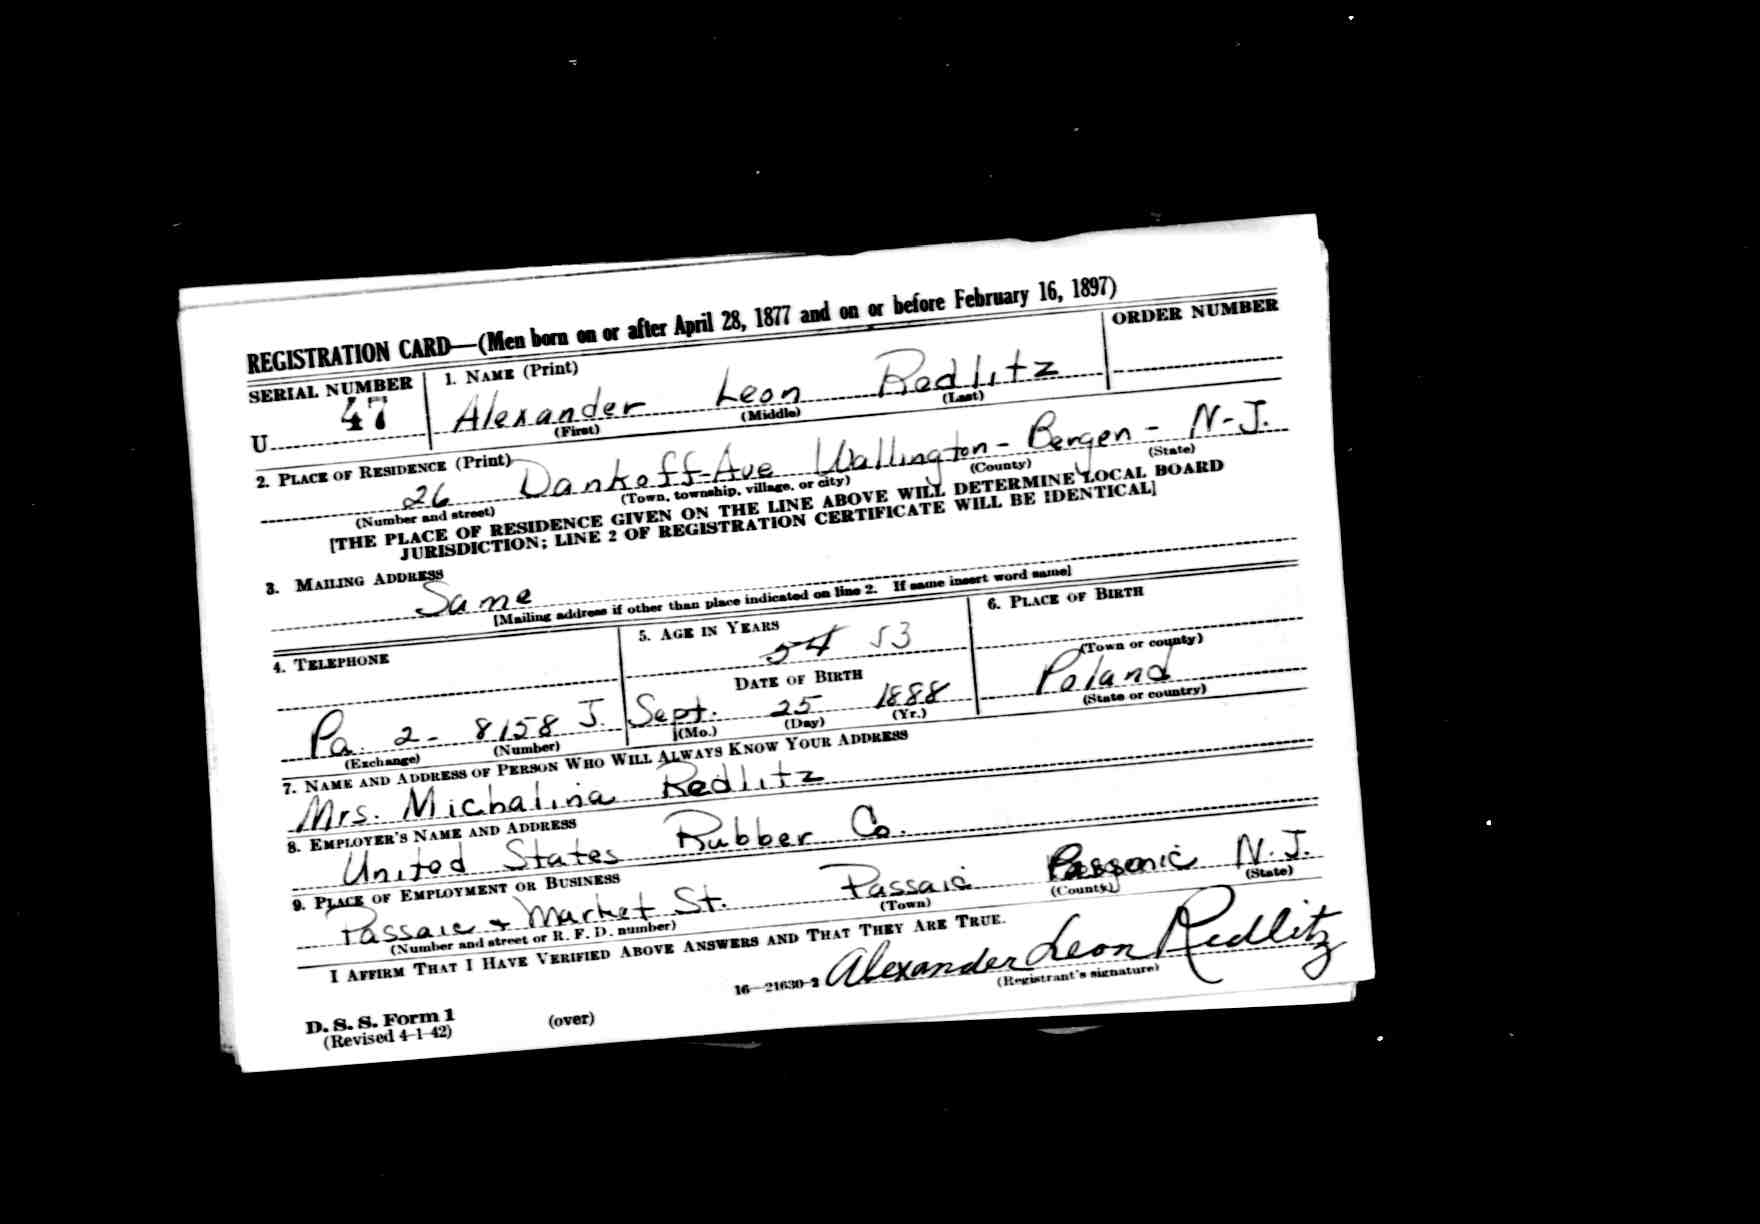 REGISTRATION CARD—(Men born on or after April 28, 1877 and on or before February 16, 1897)
SERIAL NUMBER
1. NAME (Print)
ORDER NUMBER
U 47
Alexander Leon Redlitz
(First) (Middle) (Last)
2. PLACE OF RESIDENCE (Print)
26 Dankoff-Ave Wallington- Bergen- N-J.
(Number and street) (Town, township, village, or city) (County) (State)
[THE PLACE OF RESIDENCE GIVEN ON THE LINE ABOVE WILL DETERMINE LOCAL BOARD
JURISDICTION; LINE 2 OF REGISTRATION CERTIFICATE WILL BE IDENTICAL]
3. MAILING ADDRESS
Same
[Mailing address if other than place indicated on line 2. If same insert word same]
4. TELEPHONE
5. AGE IN YEARS
6. PLACE OF BIRTH
54 53
(Town or county)
DATE OF BIRTH
Poland
(State or country)
Pa. 2- 8158 J.
Sept. 25 1888
(Exchange) (Number)
(Mo.) (Day) (Yr.)
7. NAME AND ADDRESS OF PERSON WHO WILL ALWAYS KNOW YOUR ADDRESS
Mrs. Michalina Redlitz
8. EMPLOYER'S NAME AND ADDRESS
United States Rubber Co.
9. PLACE OF EMPLOYMENT OR BUSINESS
Passaic + Market St. Passaic N. J.
(Number and street or R. F. D. number) (Town) (County) (State)
I AFFIRM THAT I HAVE VERIFIED ABOVE ANSWERS AND THAT THEY ARE TRUE.
Alexander Leon Redlitz
16—21630-2 (Registrant's signature)
D. S. S. Form 1
(Revised 4-1-42)
(over)